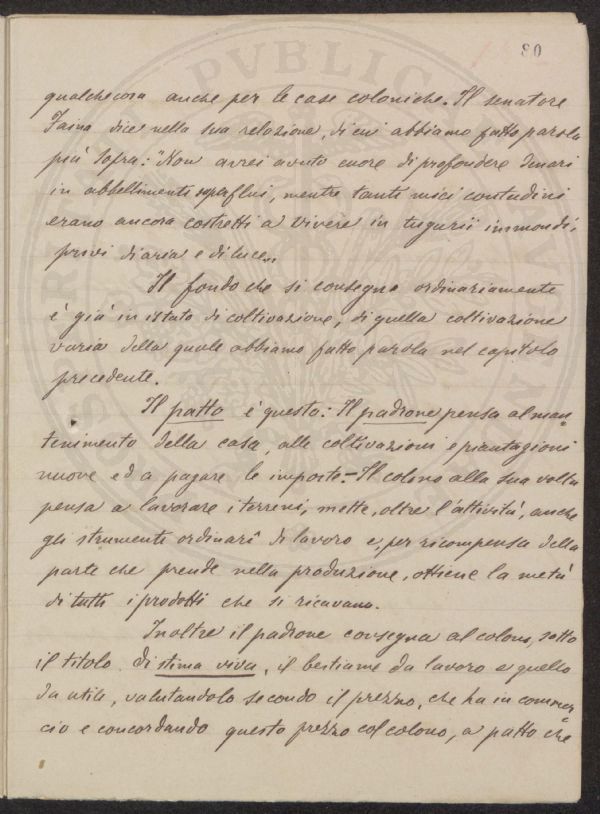 80
qualchecosa anche per le case coloniche. Il senatore
Faina dice nella sua relazione, di cui abbiamo fatto parola
più sopra: "Non avrei avuto cuore di profondere denari
in abbellimenti superflui, mentre tanti miei contadini
erano ancora costretti a vivere in tugurii immondi,
privi di aria e di luce„.
Il fondo che si consegna ordinariamente
è già in istato di coltivazione, di quella coltivazione
varia della quale abbiamo fatto parola nel capitolo
precedente.
Il patto è questo: Il padrone pensa al man-
tenimento della casa, alle coltivazioni e piantagioni
nuove ed a pagare le imposte. - Il colono alla sua volta
pensa a lavorare i terreni, mette, oltre l'attività, anche
gli strumenti ordinari di lavoro e, per ricompensa della
parte che prende nella produzione, ottiene la metà
di tutti i prodotti che si ricavano.
Inoltre il padrone consegna al colono, sotto
il titolo di stima viva, il bestiame da lavoro e quello
da utile, valutandolo secondo il prezzo, che ha in commer-
cio e concordando questo prezzo col colono, a patto che